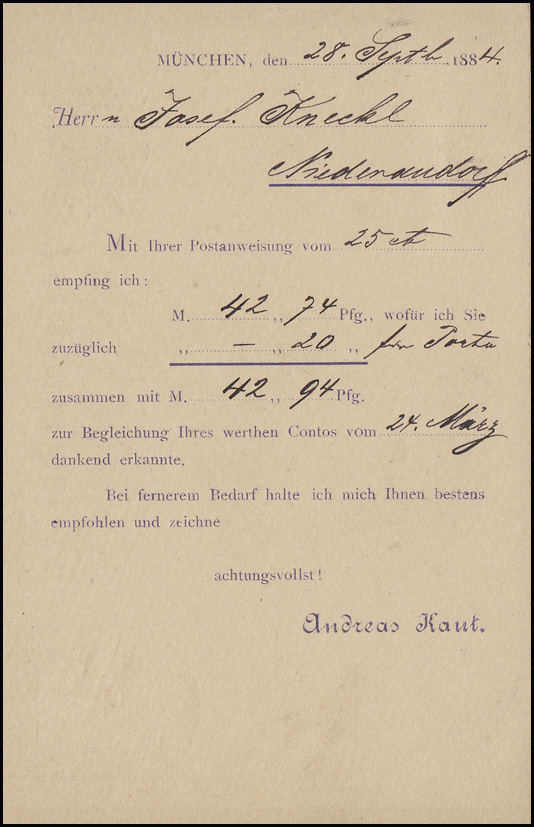 MÜNCHEN, den 28. Septb. 1884.
Herrn Josef Kneckl
Niederaudorf
Mit Ihrer Postanweisung vom 25 ct
empfing ich:
M. 42 „ 74 Pfg., wofür ich Sie
zuzüglich „ — „ 20 „ für Porto
zusammen mit M. 42 „ 94 Pfg.
zur Begleichung Ihres werthen Contos vom 24. März
dankend erkannte.
Bei fernerem Bedarf halte ich mich Ihnen bestens
empfohlen und zeichne
achtungsvollst!
Andreas Kaut.